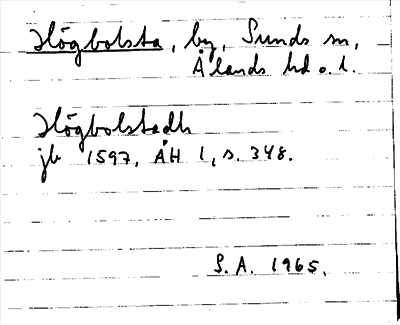 Högbolsta, by, Sunds sn,
Ålands hd o. l.
Högbolstadh
jb 1597, ÅH 1, s. 348.
S.A. 1965.